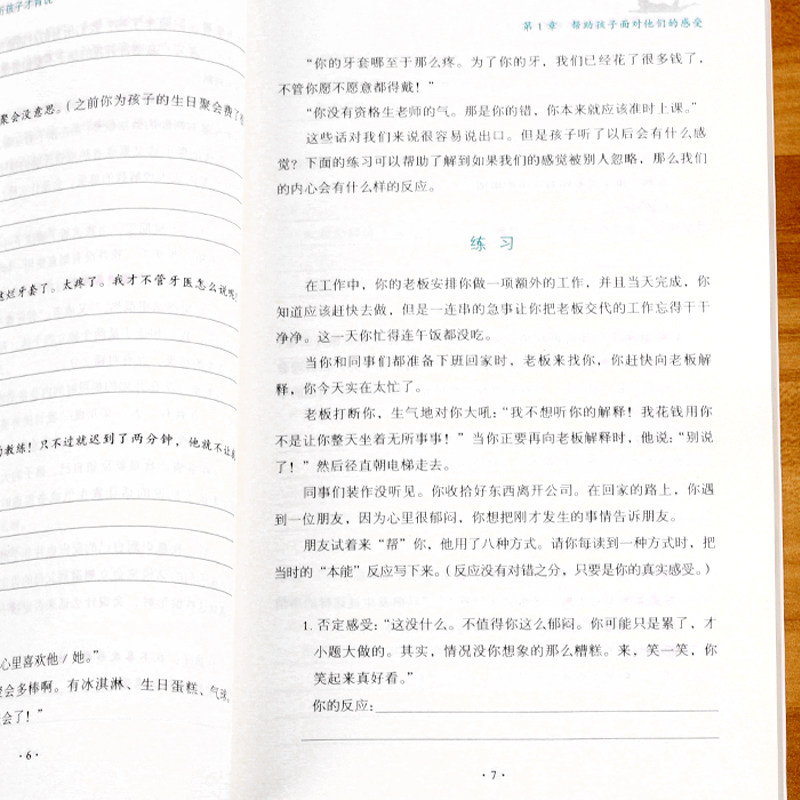 孩子才肯说
聚会没意思。（之前你为孩子的生日聚会费了
烂牙套了。太疼了。我才不管牙医怎么说呢
教练！只不过就迟到了两分钟，他就不让
心里喜欢他/她。”
会多棒啊。有冰淇淋、生日蛋糕、气球
会了！”
·6·
第1章 帮助孩子面对他们的感受
“你的牙套哪至于那么疼。为了你的牙，我们已经花了很多钱了，
不管你愿不愿意都得戴！”
“你没有资格生老师的气。那是你的错，你本来就应该准时上课。”
这些话对我们来说很容易说出口。但是孩子听了以后会有什么感
觉？下面的练习可以帮助了解到如果我们的感觉被别人忽略，那么我们
的内心会有什么样的反应。
练 习
在工作中，你的老板安排你做一项额外的工作，并且当天完成，你
知道应该赶快去做，但是一连串的急事让你把老板交代的工作忘得干干
净净。这一天你忙得连午饭都没吃。
当你和同事们都准备下班回家时，老板来找你，你赶快向老板解
释，你今天实在太忙了。
老板打断你，生气地对你大吼：“我不想听你的解释！我花钱用你
不是让你整天坐着无所事事！”当你正要再向老板解释时，他说：“别说
了！”然后径直朝电梯走去。
同事们装作没听见。你收拾好东西离开公司。在回家的路上，你遇
到一位朋友，因为心里很郁闷，你想把刚才发生的事情告诉朋友。
朋友试着来“帮”你，他用了八种方式。请你每读到一种方式时，把
当时的“本能”反应写下来。（反应没有对错之分，只要是你的真实感受。）
1. 否定感受：“这没什么。不值得你这么郁闷。你可能只是累了，才
小题大做的。其实，情况没你想象的那么糟糕。来，笑一笑，你
笑起来真好看。”
你的反应：
·7·